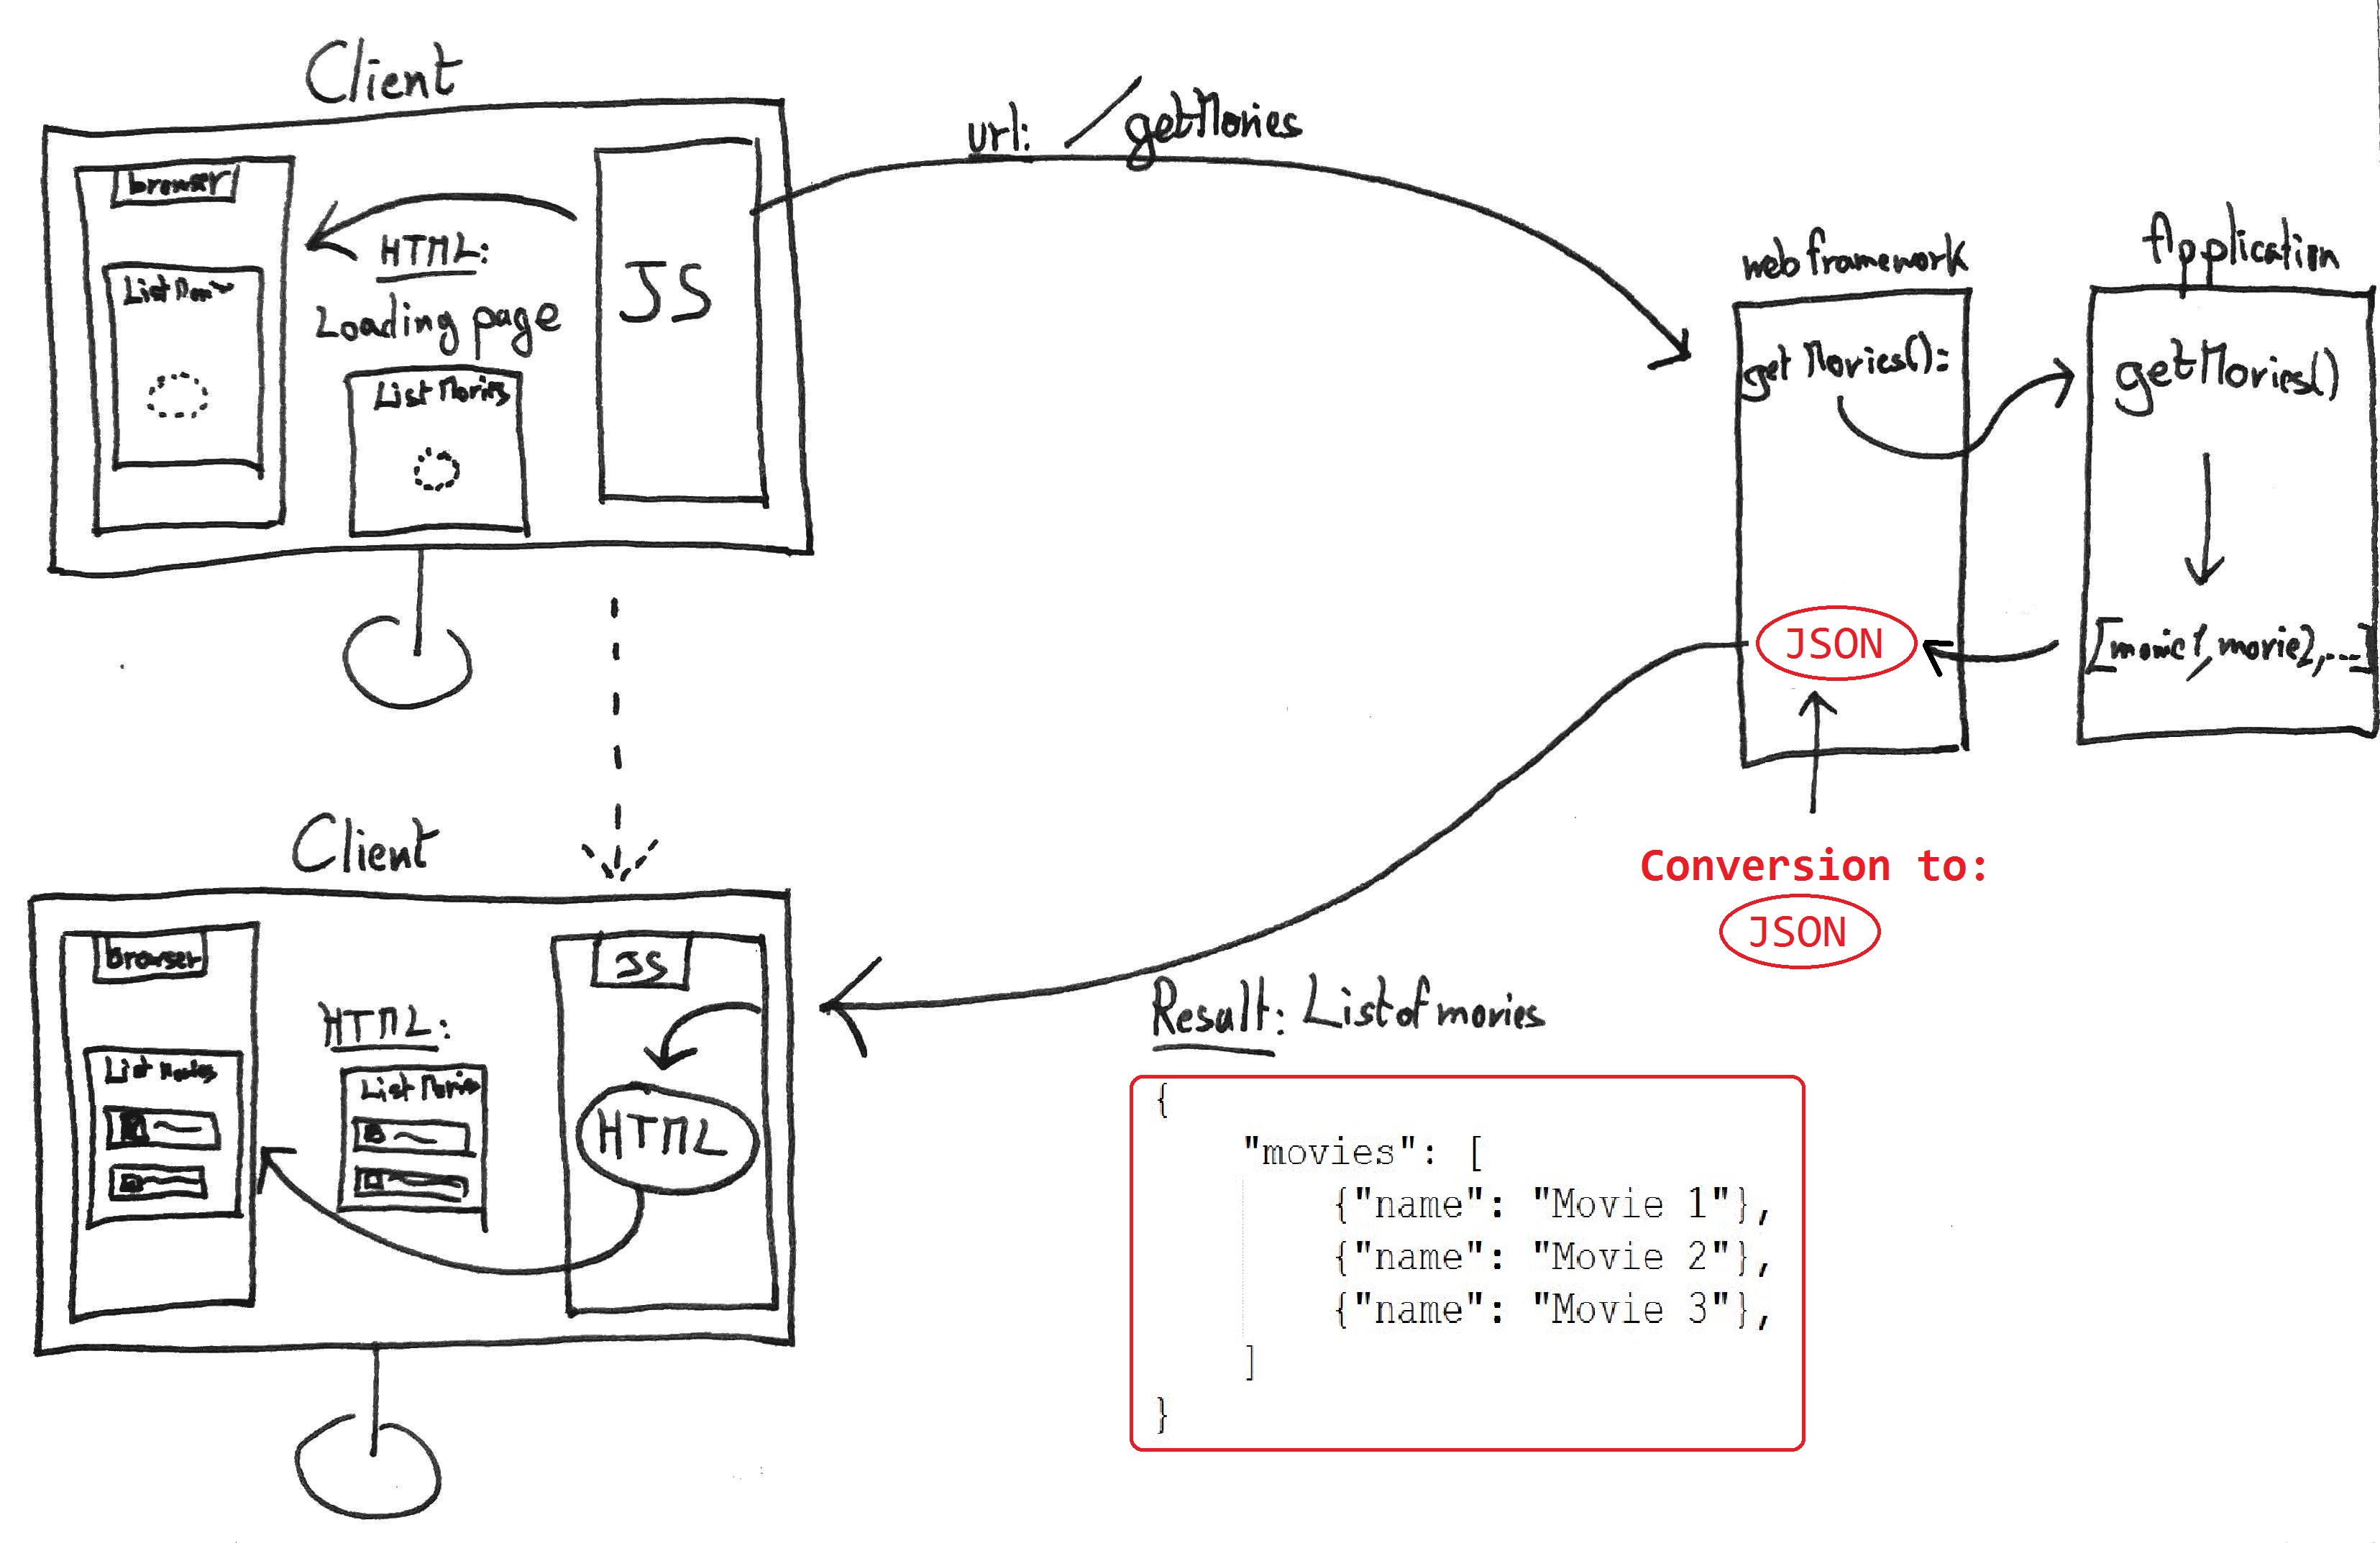 Client
browser
List
HTML:
Loading page
List Movies
JS
url: /getMovies
web framework
getMovies():
JSON
Application
getMovies()
[movie1, movie2, ...]
Conversion to:
JSON
Client
browser
List Movies
HTML:
List Movies
JS
HTML
Result: List of movies
{
"movies": [
{"name": "Movie 1"},
{"name": "Movie 2"},
{"name": "Movie 3"},
]
}